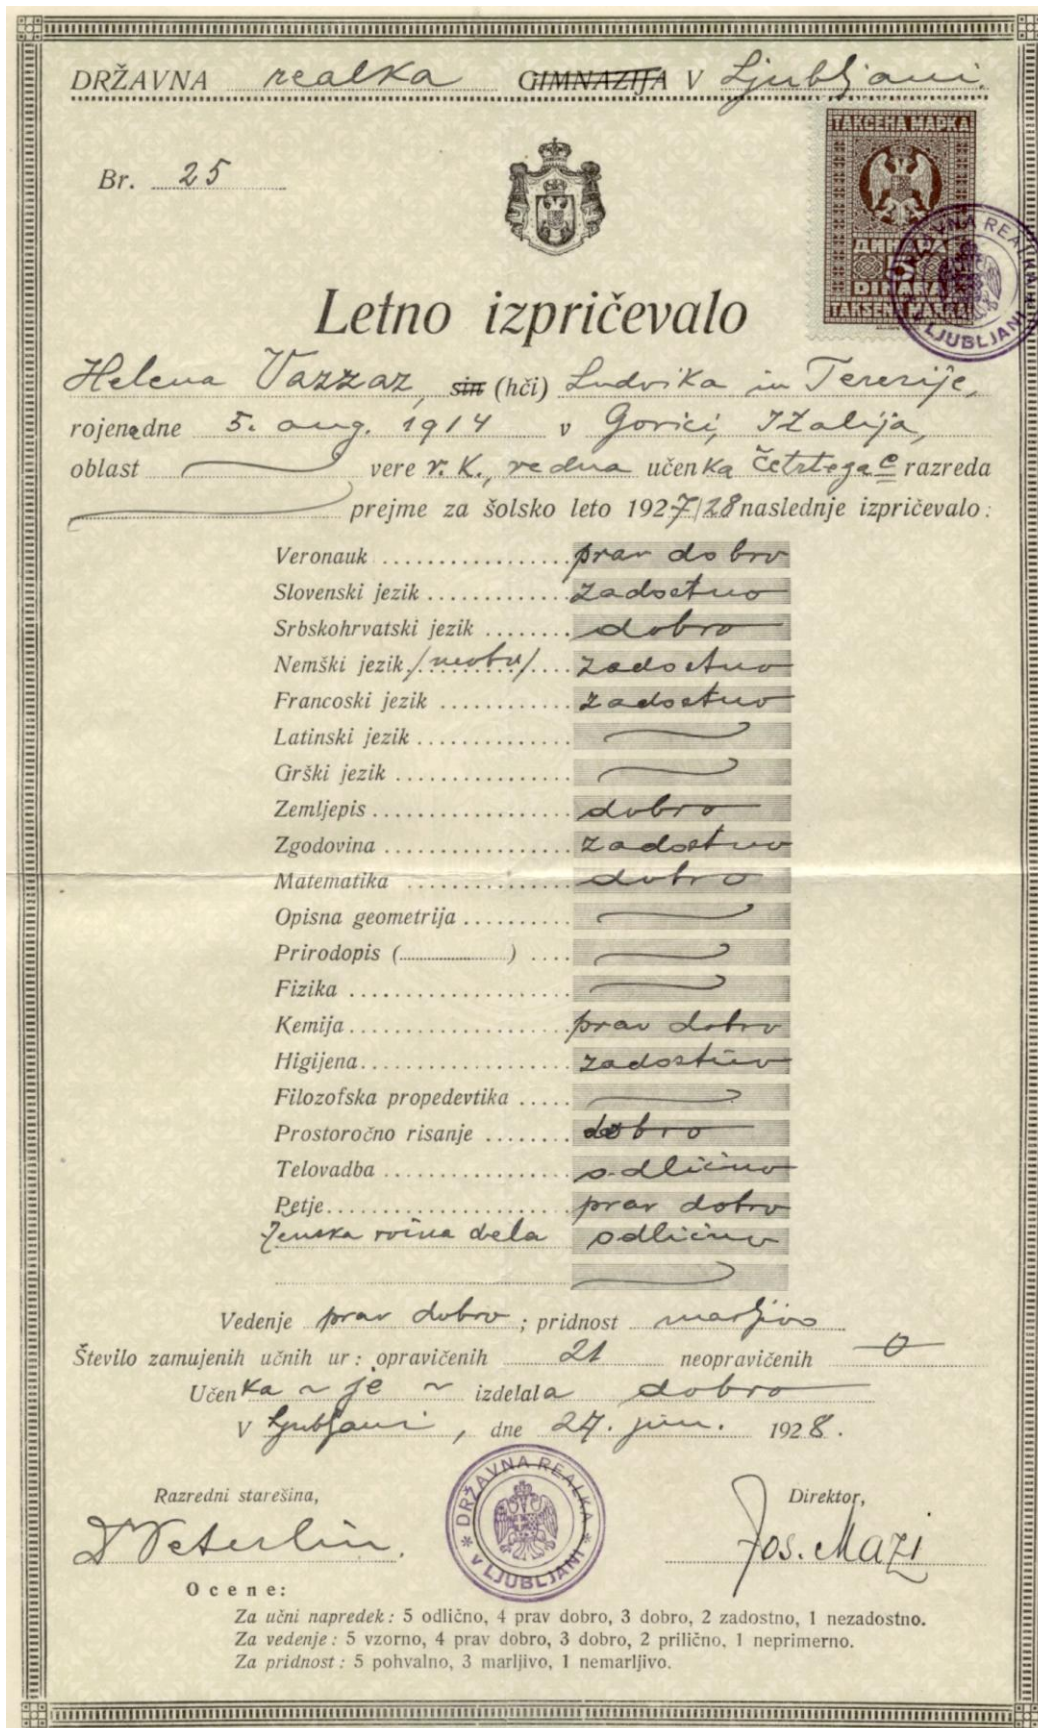 DRŽAVNA realka GIMNAZIJA V Ljubljani.
Br. 25
ТАКСЕНА МАРКА
ДИНАРА
5
DINARA
TAKSENA MARKA
DRŽAVNA REALKA V LJUBLJANI
Letno izpričevalo
Helena Vazzaz, sin (hči) Ludvika in Terezije,
rojena dne 5. aug. 1914 v Gorici, Italija,
oblast vere r. k., redna učenka četrtega c razreda
prejme za šolsko leto 1927/28 naslednje izpričevalo:
Veronauk prav dobro
Slovenski jezik zadostno
Srbskohrvatski jezik dobro
Nemški jezik /neobv/ zadostno
Francoski jezik zadostno
Latinski jezik
Grški jezik
Zemljepis dobro
Zgodovina zadostno
Matematika dobro
Opisna geometrija
Prirodopis (............)
Fizika
Kemija prav dobro
Higijena zadostno
Filozofska propedevtika
Prostoročno risanje dobro
Telovadba odlično
Petje prav dobro
Ženska ročna dela odlično
Vedenje prav dobro; pridnost marljivo
Število zamujenih učnih ur: opravičenih 21 neopravičenih 0
Učenka ~ je ~ izdelala dobro
V Ljubljani, dne 27. jun. 1928.
Razredni starešina,
Direktor,
Jos. Mazi
* DRŽAVNA REALKA * V LJUBLJANI
Ocene:
Za učni napredek: 5 odlično, 4 prav dobro, 3 dobro, 2 zadostno, 1 nezadostno.
Za vedenje: 5 vzorno, 4 prav dobro, 3 dobro, 2 prilično, 1 neprimerno.
Za pridnost: 5 pohvalno, 3 marljivo, 1 nemarljivo.